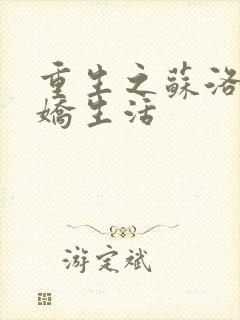 重生之蘇洛
嬌生活
游定斌